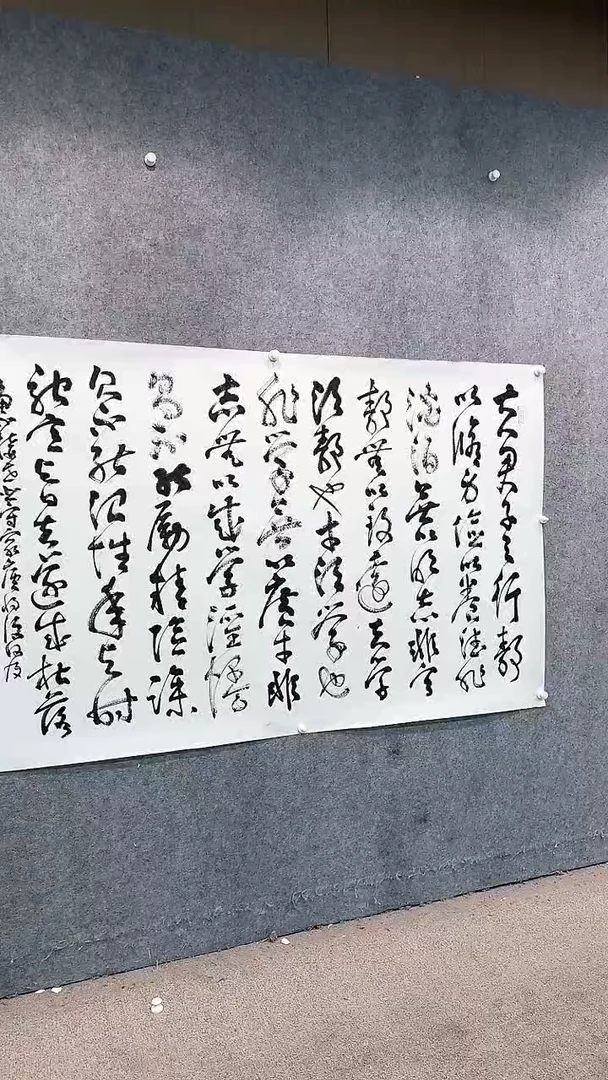 夫君子之行靜
以修身儉以養德非
澹泊無以明志非寧
靜無以致遠夫學
須靜也才須學也
非學無以廣才非
志無以成學淫慢
則不能勵精險躁
則不能治性年與時
馳意與日去遂成枯落
多不接世悲守窮廬將復何及